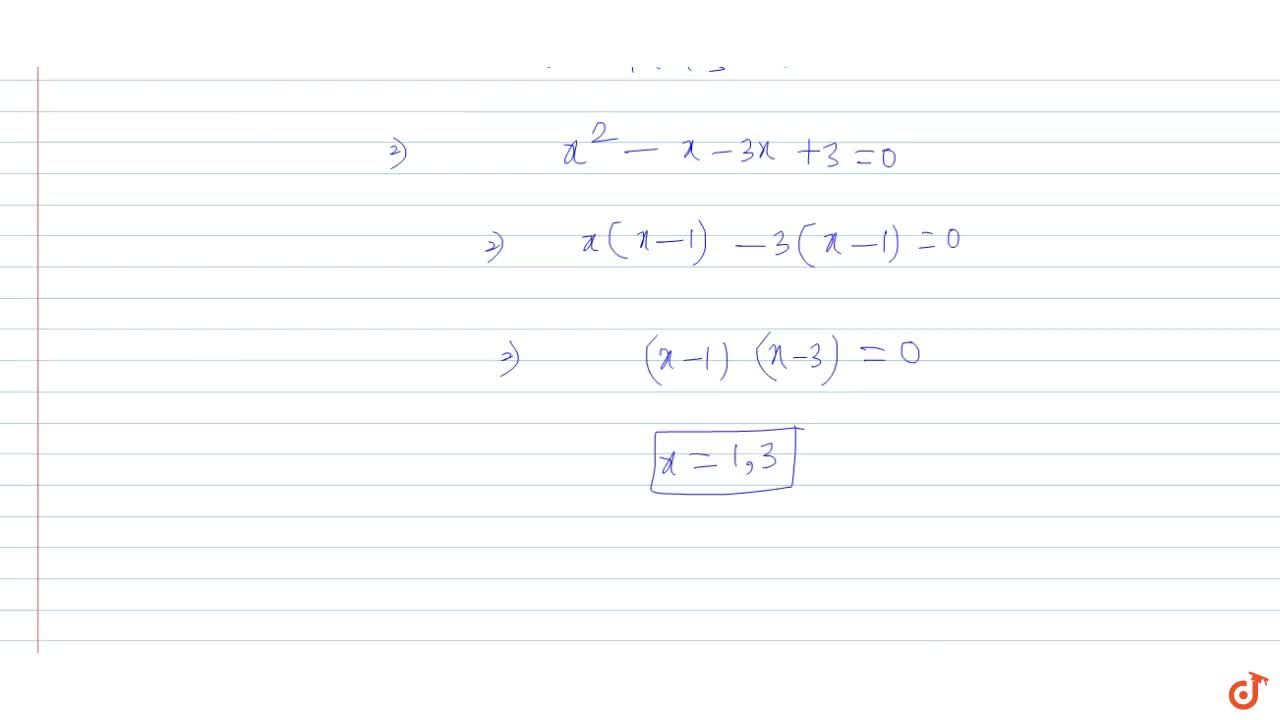 ⇒ x² - x - 3x + 3 = 0
⇒ x(x-1) - 3(x-1) = 0
⇒ (x-1) (x-3) = 0
x = 1, 3